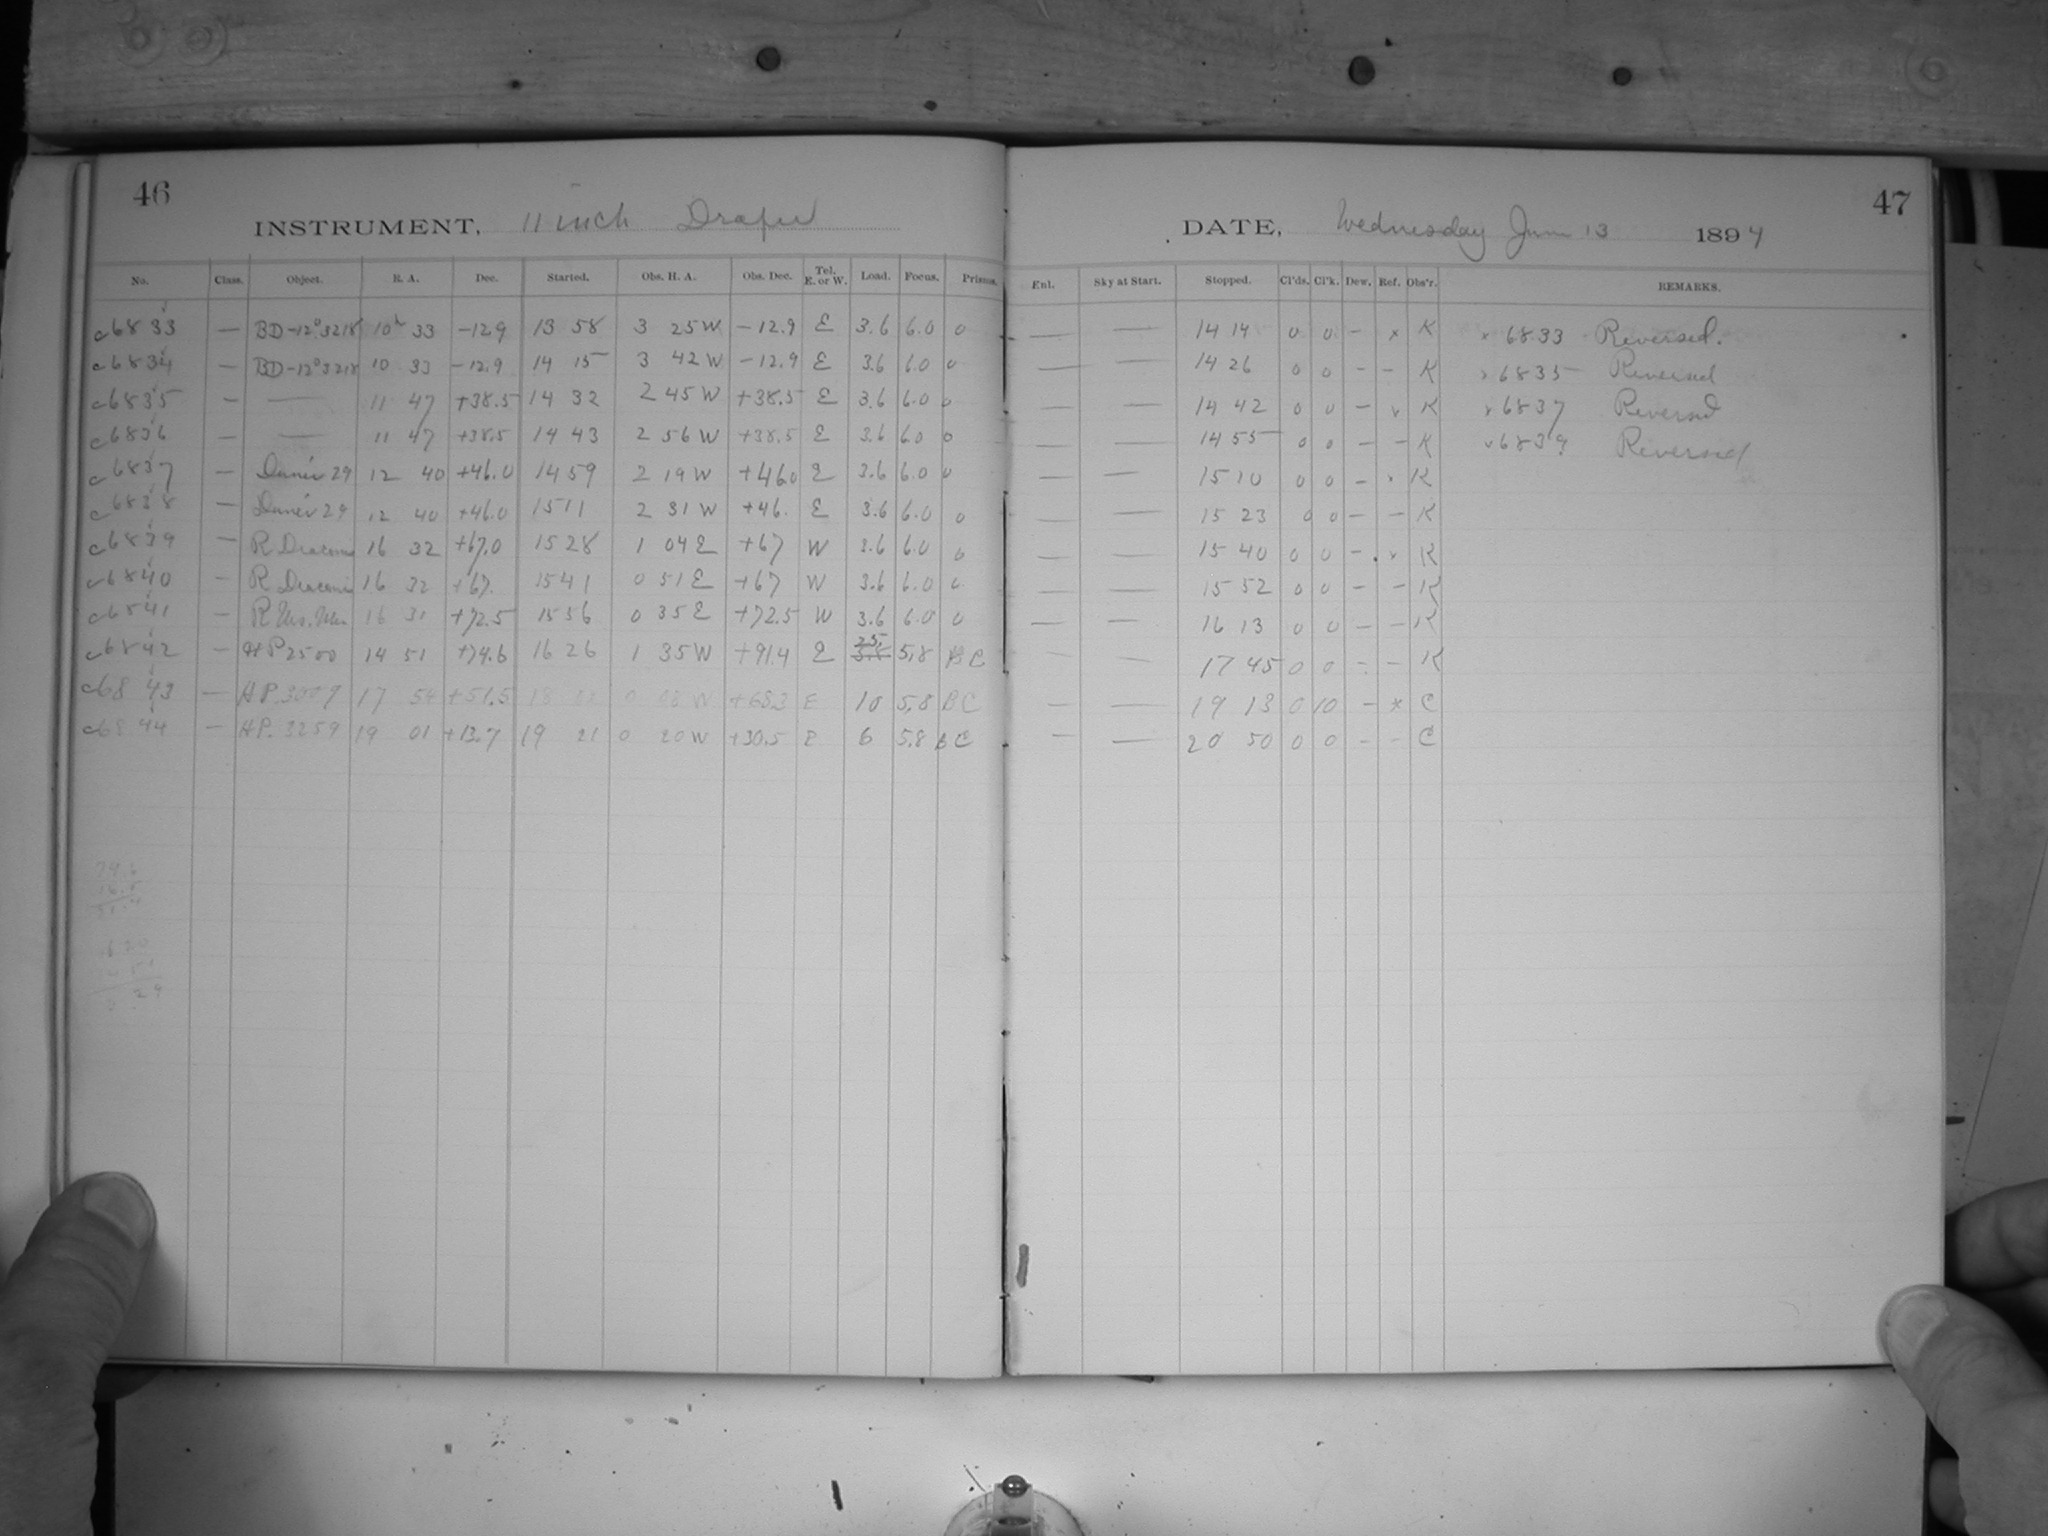 46
INSTRUMENT, 11 inch Draper
No. Class. Object. R. A. Dec. Started. Obs. H. A. Obs. Dec. Tel. E. or W. Load. Focus. Prisms.
c6833 — BD-12°3218 10h 33 -12.9 13 58 3 25 W -12.9 E 3.6 6.0 0
c6834 — BD-12°3218 10 33 -12.9 14 15 3 42 W -12.9 E 3.6 6.0 0
c6835 — — 11 47 +38.5 14 32 2 45 W +38.5 E 3.6 6.0 0
c6836 — — 11 47 +38.5 14 43 2 56 W +38.5 E 3.6 6.0 0
c6837 — Dunér 29 12 40 +46.0 14 59 2 19 W +46.0 E 3.6 6.0 0
c6838 — Dunér 29 12 40 +46.0 15 11 2 31 W +46. E 3.6 6.0 0
c6839 — R Draconis 16 32 +67.0 15 28 1 04 E +67 W 3.6 6.0 0
c6840 — R Draconis 16 32 +67. 15 41 0 51 E +67 W 3.6 6.0 0
c6841 — R Urs. Min. 16 31 +72.5 15 56 0 35 E +72.5 W 3.6 6.0 0
c6842 — HP 2500 14 51 +74.6 16 26 1 35 W +91.4 E 25. 5.8 5.8 BC
c6843 — HP. 3007 17 54 +51.5 18 0 08 W +68.3 E 10 5.8 BC
c6844 — HP. 3259 19 01 +13.7 19 21 0 20 W +30.5 E 6 5.8 BC
74.6
16.8
91.4
0 29
47
DATE, Wednesday June 13 1894
Enl. Sky at Start. Stopped. Cl'ds. Cl'k. Dew. Ref. Obs'r. REMARKS.
— — 14 14 0 0 - x K x 6833 Reversed.
— — 14 26 0 0 - - K x 6835 Reversed
— — 14 42 0 0 - x K x 6837 Reversed
— — 14 55 0 0 - - K x 6839 Reversed
— — 15 10 0 0 - x K
— — 15 23 0 0 - - K
— — 15 40 0 0 - x K
— — 15 52 0 0 - - K
— — 16 13 0 0 - - K
— — 17 45 0 0 - - K
— — 19 13 0 10 - x C
— — 20 50 0 0 - - C